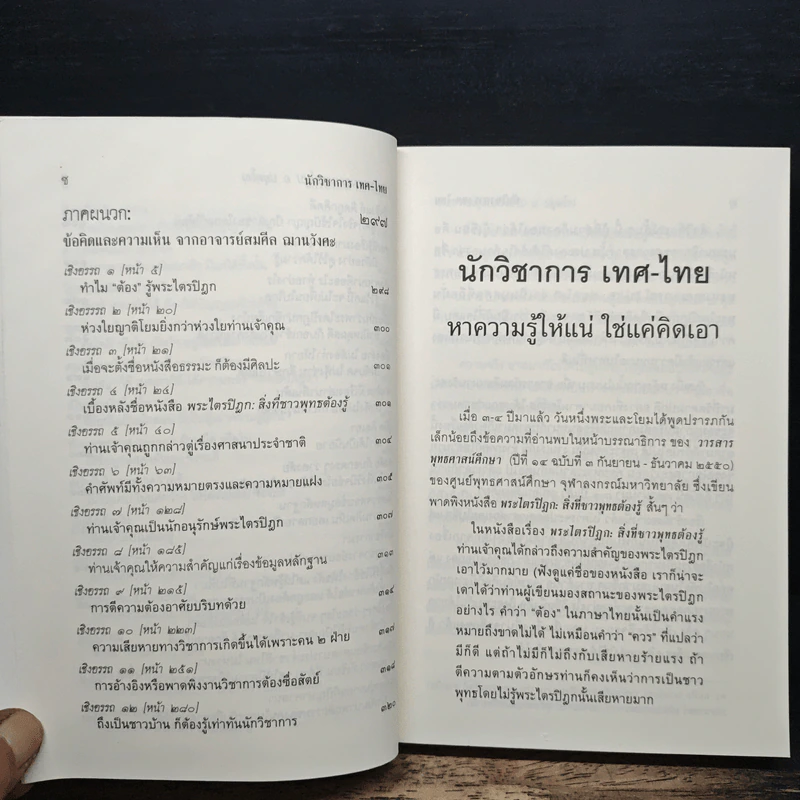 ซ
นักวิชาการ เทศ-ไทย
ภาคผนวก:
๒๙๗
ข้อคิดและความเห็น จากอาจารย์สมศีล ฌานวังศะ
เชิงอรรถ ๑ [หน้า ๕]
ทำไม "ต้อง" รู้พระไตรปิฎก
๒๙๘
เชิงอรรถ ๒ [หน้า ๒๐]
ห่วงใยญาติโยมยิ่งกว่าห่วงใยท่านเจ้าคุณ
๓๐๐
เชิงอรรถ ๓ [หน้า ๒๑]
เมื่อจะตั้งชื่อหนังสือธรรมะ ก็ต้องมีศิลปะ
๓๐๑
เชิงอรรถ ๔ [หน้า ๒๔]
เบื้องหลังชื่อหนังสือ พระไตรปิฎก: สิ่งที่ชาวพุทธต้องรู้
๓๐๑
เชิงอรรถ ๕ [หน้า ๔๐]
ท่านเจ้าคุณถูกกล่าวตู่เรื่องศาสนาประจำชาติ
๓๐๔
เชิงอรรถ ๖ [หน้า ๖๓]
คำศัพท์มีทั้งความหมายตรงและความหมายแฝง
๓๐๕
เชิงอรรถ ๗ [หน้า ๑๒๘]
ท่านเจ้าคุณเป็นนักอนุรักษ์พระไตรปิฎก
๓๐๗
เชิงอรรถ ๘ [หน้า ๑๘๕]
ท่านเจ้าคุณให้ความสำคัญแก่เรื่องข้อมูลหลักฐาน
๓๑๓
เชิงอรรถ ๙ [หน้า ๒๑๕]
การตีความต้องอาศัยบริบทด้วย
๓๑๔
เชิงอรรถ ๑๐ [หน้า ๒๒๓]
ความเสียหายทางวิชาการเกิดขึ้นได้เพราะคน ๒ ฝ่าย
๓๑๗
เชิงอรรถ ๑๑ [หน้า ๒๕๑]
การอ้างอิงหรือพาดพิงงานวิชาการต้องซื่อสัตย์
๓๑๘
เชิงอรรถ ๑๒ [หน้า ๒๘๐]
ถึงเป็นชาวบ้าน ก็ต้องรู้เท่าทันนักวิชาการ
๓๒๐
นักวิชาการ เทศ-ไทย
หาความรู้ให้แน่ ใช่แค่คิดเอา
เมื่อ ๓-๔ ปีมาแล้ว วันหนึ่งพระและโยมได้พูดปรารภกัน
เล็กน้อยถึงข้อความที่อ่านพบในหน้าบรรณาธิการ ของ วารสาร
พุทธศาสน์ศึกษา (ปีที่ ๑๔ ฉบับที่ ๓ กันยายน - ธันวาคม ๒๕๕๐)
ของศูนย์พุทธศาสน์ศึกษา จุฬาลงกรณ์มหาวิทยาลัย ซึ่งเขียน
พาดพิงหนังสือ พระไตรปิฎก: สิ่งที่ชาวพุทธต้องรู้ สั้นๆ ว่า
ในหนังสือเรื่อง พระไตรปิฎก: สิ่งที่ชาวพุทธต้องรู้
ท่านเจ้าคุณได้กล่าวถึงความสำคัญของพระไตรปิฎก
เอาไว้มากมาย (ฟังดูแค่ชื่อของหนังสือ เราก็น่าจะ
เดาได้ว่าท่านผู้เขียนมองสถานะของพระไตรปิฎก
อย่างไร คำว่า "ต้อง" ในภาษาไทยนั้นเป็นคำแรง
หมายถึงขาดไม่ได้ ไม่เหมือนคำว่า "ควร" ที่แปลว่า
มีก็ดี แต่ถ้าไม่มีก็ไม่ถึงกับเสียหายร้ายแรง ถ้า
ตีความตามตัวอักษรท่านก็คงเห็นว่าการเป็นชาว
พุทธโดยไม่รู้พระไตรปิฎกนั้นเสียหายมาก